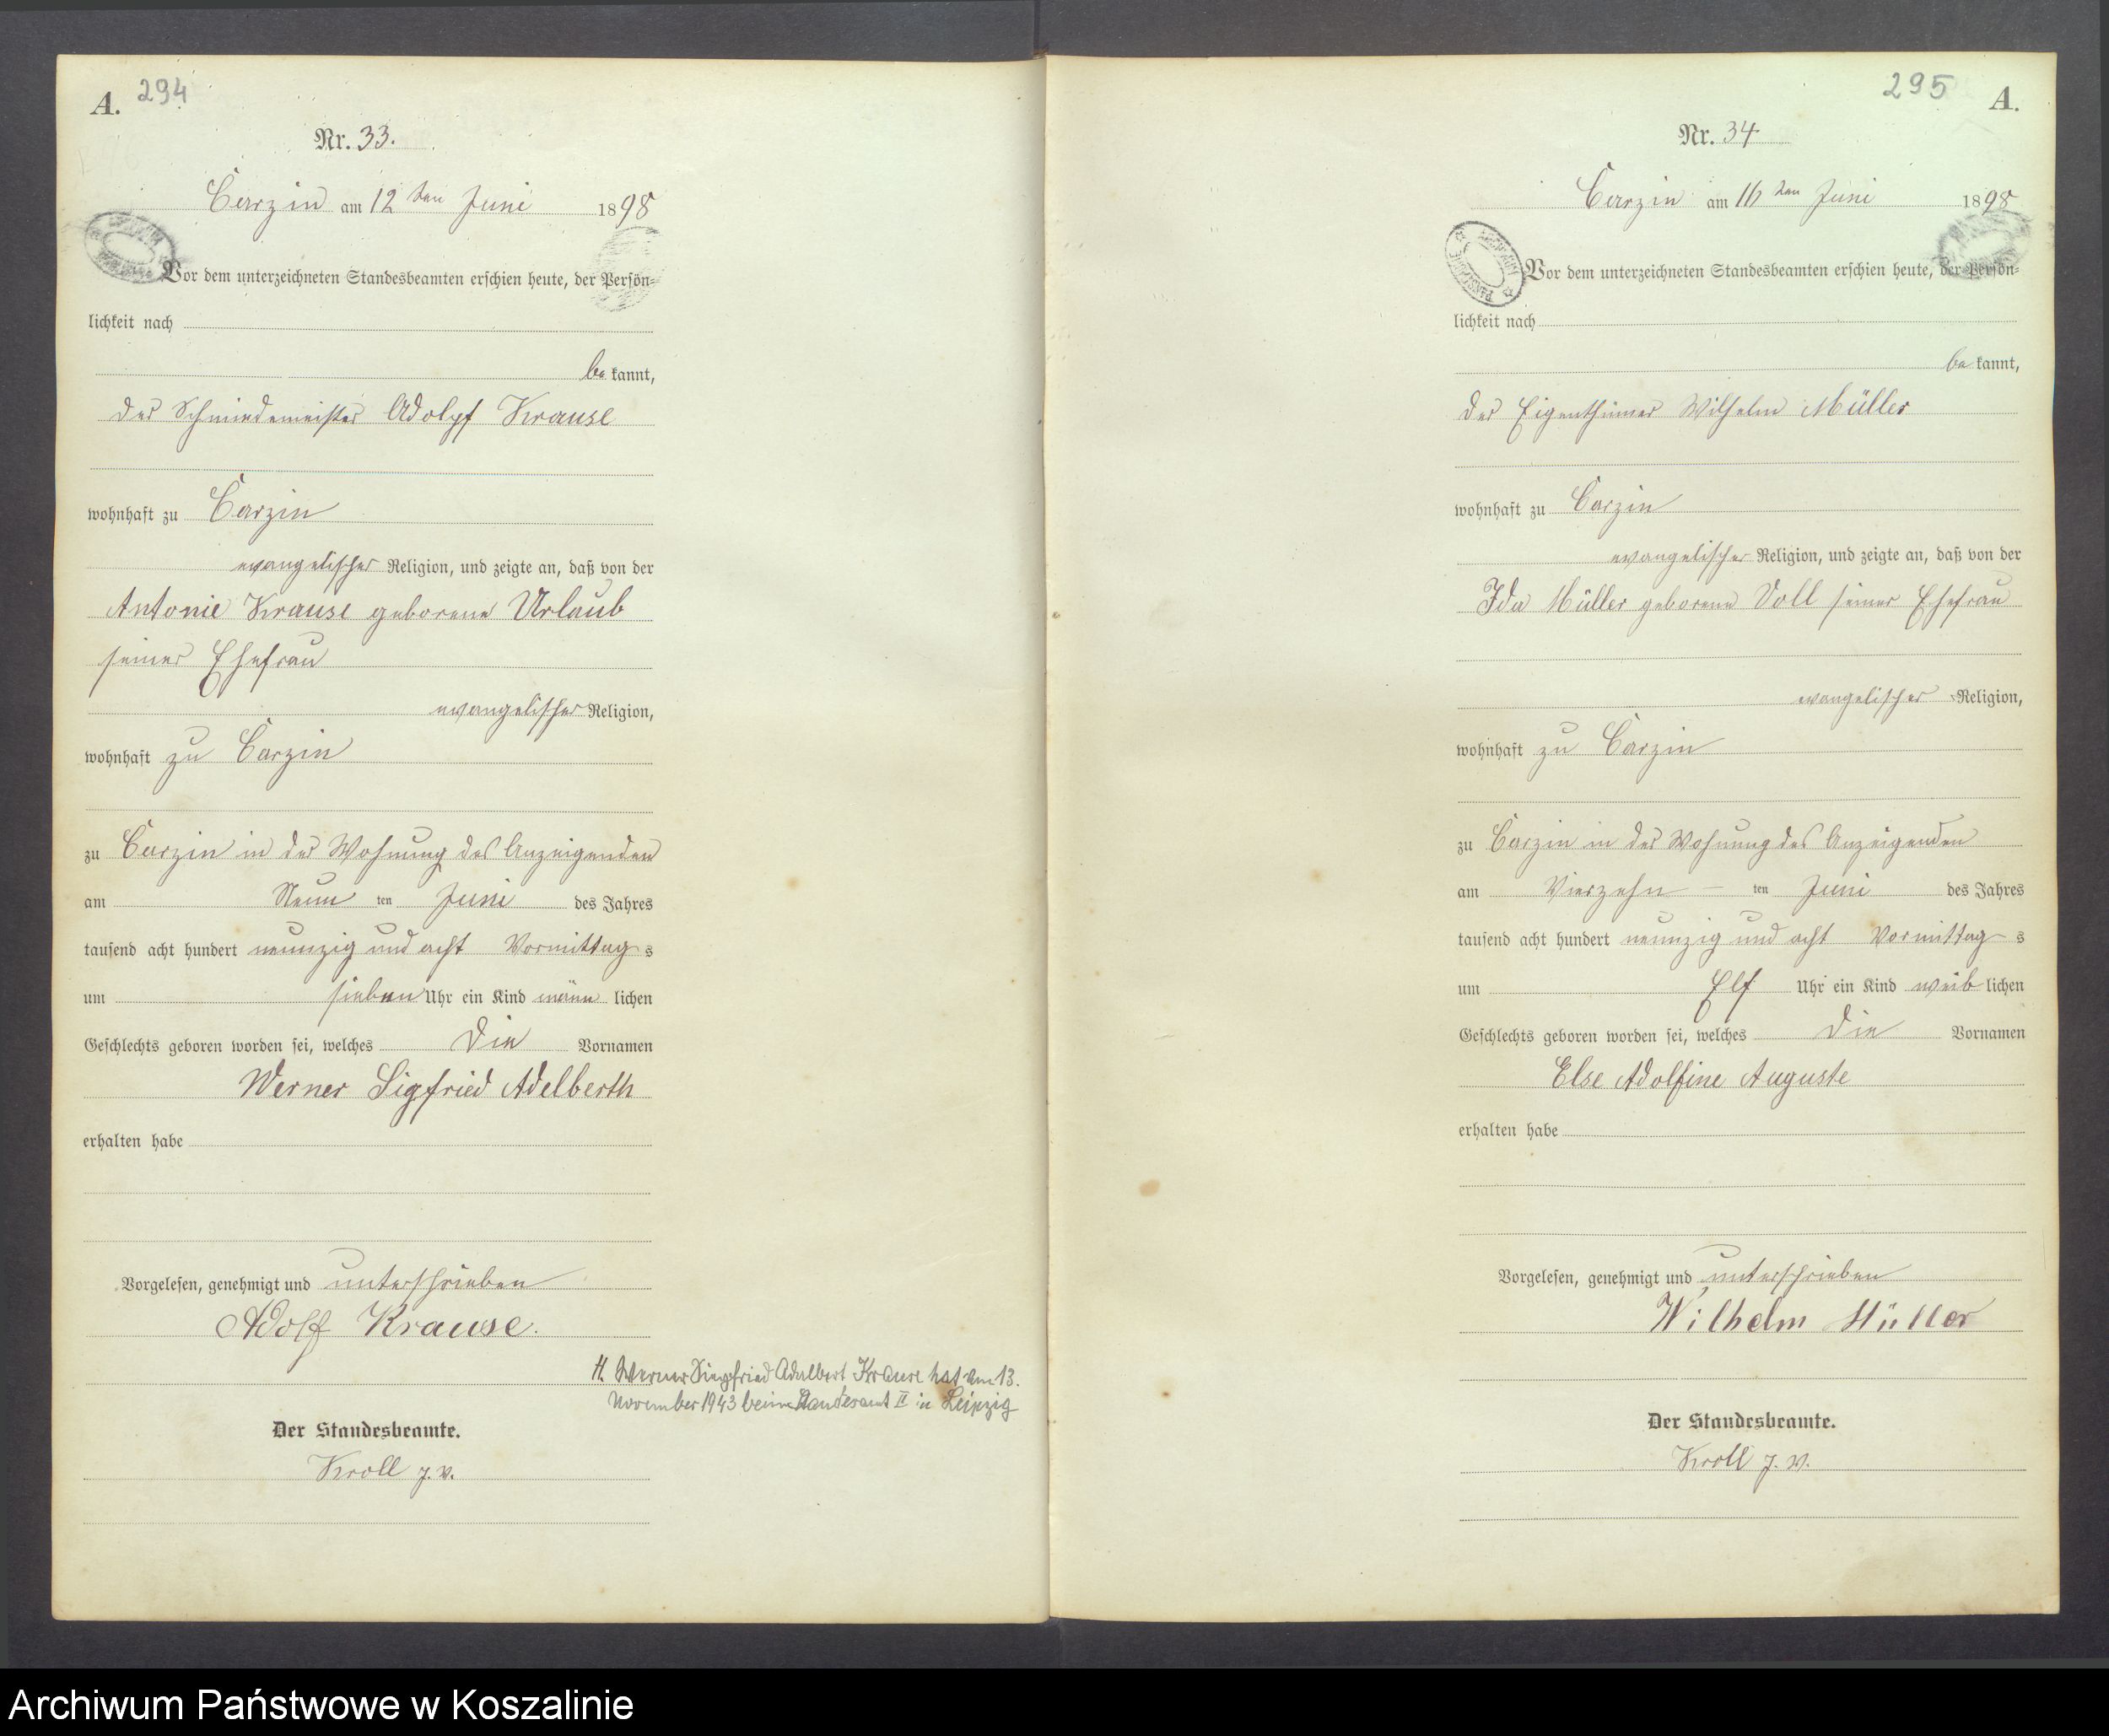 A. 294
Nr. 33.
Carzin am 12 ten Juni 1898
Vor dem unterzeichneten Standesbeamten erschien heute, der Persön-
lichkeit nach
be kannt,
der Schmiedemeister Adolpf Krause
wohnhaft zu Carzin
evangelischer Religion, und zeigte an, daß von der
Antonie Krause geborene Urlaub
seiner Ehefrau
evangelischer Religion,
wohnhaft zu Carzin
zu Carzin in der Wohnung des Anzeigenden
am Neun ten Juni des Jahres
tausend acht hundert neunzig und acht Vormittag s
um sieben Uhr ein Kind männ lichen
Geschlechts geboren worden sei, welches die Vornamen
Werner Sigfried Adelberth
erhalten habe
Vorgelesen, genehmigt und unterschrieben
Adolf Krause.
H. Werner Siegfried Adalbert Krause hat am 13.
November 1943 beim Standesamt II in Leipzig
Der Standesbeamte.
Kroll
295 A.
Nr. 34
Carzin am 16 ten Juni 1898
Vor dem unterzeichneten Standesbeamten erschien heute, der Persön-
lichkeit nach
be kannt,
der Eigenthümer Wilhelm Müller
wohnhaft zu Carzin
evangelischer Religion, und zeigte an, daß von der
Ida Müller geborene Voll seiner Ehefrau
evangelischer Religion,
wohnhaft zu Carzin
zu Carzin in der Wohnung des Anzeigenden
am Vierzehn ten Juni des Jahres
tausend acht hundert neunzig und acht Vormittag s
um Elf Uhr ein Kind weib lichen
Geschlechts geboren worden sei, welches die Vornamen
Else Adolfine Auguste
erhalten habe
Vorgelesen, genehmigt und unterschrieben
Wilhelm Müller
Der Standesbeamte.
Kroll
Archiwum Państwowe w Koszalinie